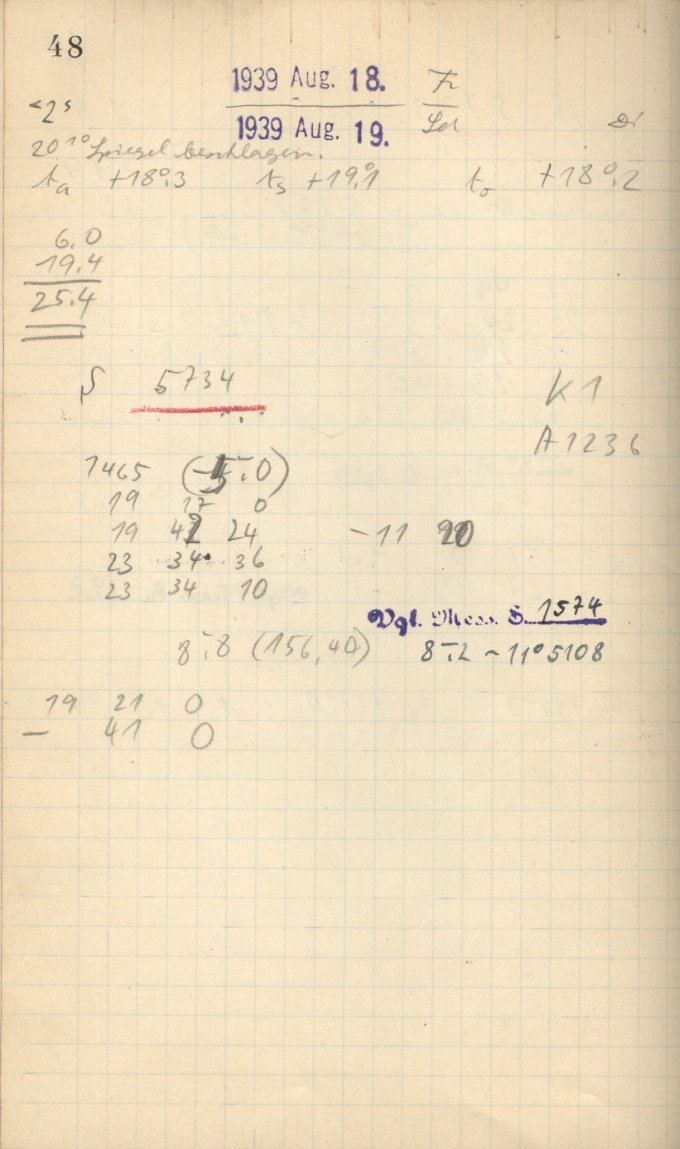 48
1939 Aug. 18. Fr
1939 Aug. 19. Sd
"2s
20 10 Spiegel beschlagen.
ta +18°.3 ts +19°.1 to +18°.2
6.0
19.4
25.4
S 5734
K 1
A 1236
1465 (-5.0)
19 17 0
19 42 24 -11 20
23 34 36
23 34 10
Vgl. Mess. S. 1574
8.8 (156,40) 8.2 -11°5108
19 21 0
- 41 0